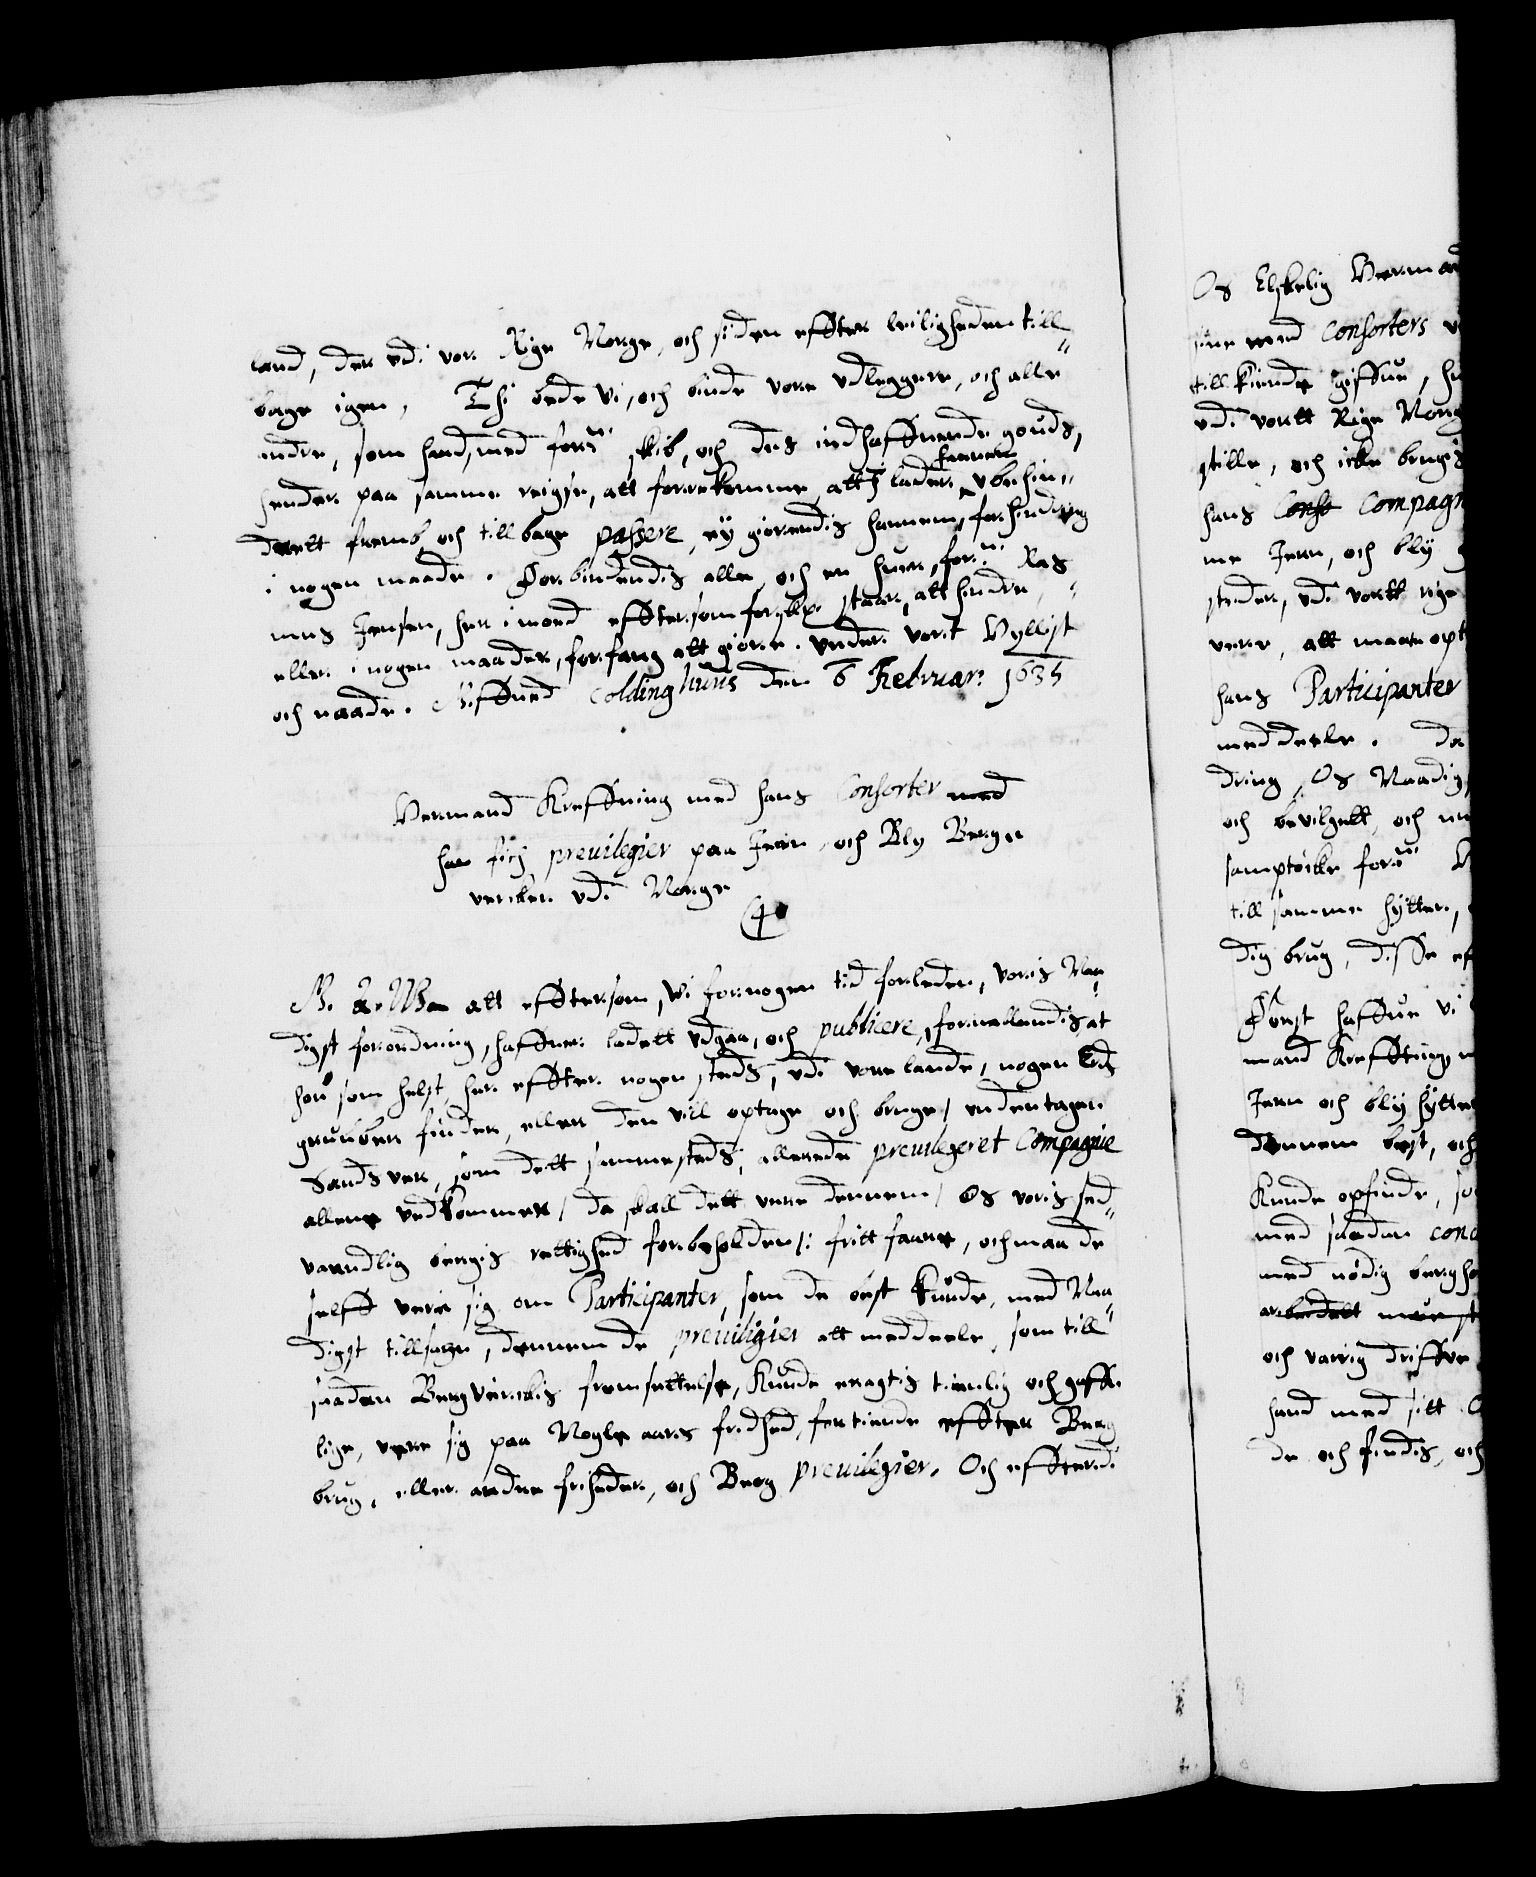 land, der vdi vor Rige Norge, och siden effter leiligheden till„
bage igen, Thi bede vi, och biude vore vdleggere, och alle
andre, som hand, med forne skib, och des indhaffuende goeds,
hender paa samme reigse, att forrekomme, att i lader hannem vbehin„
drett fremb och till bage passere, eÿ giørendis hannem forhindring
i nogen maade. Forbiudendis alle, och en huer, forne Ras„
mus Jensen, her imod eftersom forskr. staar, att hindre,
eller i nogen maader, forfang att giøre. vnder vort Hyllist
och naade. Giffued Coldinghuus den 6 Februar: 1635
Hermand Kreffting med hans Consorter med
haa fich preuilegier paa Jern och Bly Berge
vercker vdi Norge
G. A. W. att effttersom, Wi for nogen tid forleden, voris Naa„
digst forordning, haffuer ladett vdgaa, och publicere, formellendis, at
huo som helst, her effter nogen steds, vdi vore lande, nogen Erds
gruuber finder, eller den vill optage och bruge / vndertagen
Sandsver, som dett sammesteds, allerede preuilegeret Compagnie
allene vedkommer / da skall dett vere dennem / Os voris sed„
vaandlig bergis rettighed forbeholden /: fritt faaree, och maa de
selff verie sig om Participanter, som de best kunde, med Naa„
digst tillsagn, dennem de preuiligier att meddeele, som till
saadan Bergverckis fremsettelse, kunde eragtis tienlig och gaffn„
lige, vere sig paa Nogle aars frihed, for tiende effter Berg
brug, eller andre friheder, och Berg preuilegier. Och effterdi
Os Elskelig Herman
sine med Consorters
tillkiende giffue, h
vdi vortt Rige Norg
stille, och icke brugis
hans Const Compagn
me Jern, och bly
steder, vdi vortt rige
vere, att maatte opt
hans Participanter
meddeele. Da
dring, Os Naadig
och bevilgett, och
samptÿcke forne H
till samme hÿtter,
dig brug, disse ef
Først haffue vi
mand Kreffting,
Jern och blÿ hÿtter
dennem best, och
kunde opfinde, so
med saadan cond
med nødig berg
arbeidett
och varrig driffue
hand med sitt C
de och findis, och